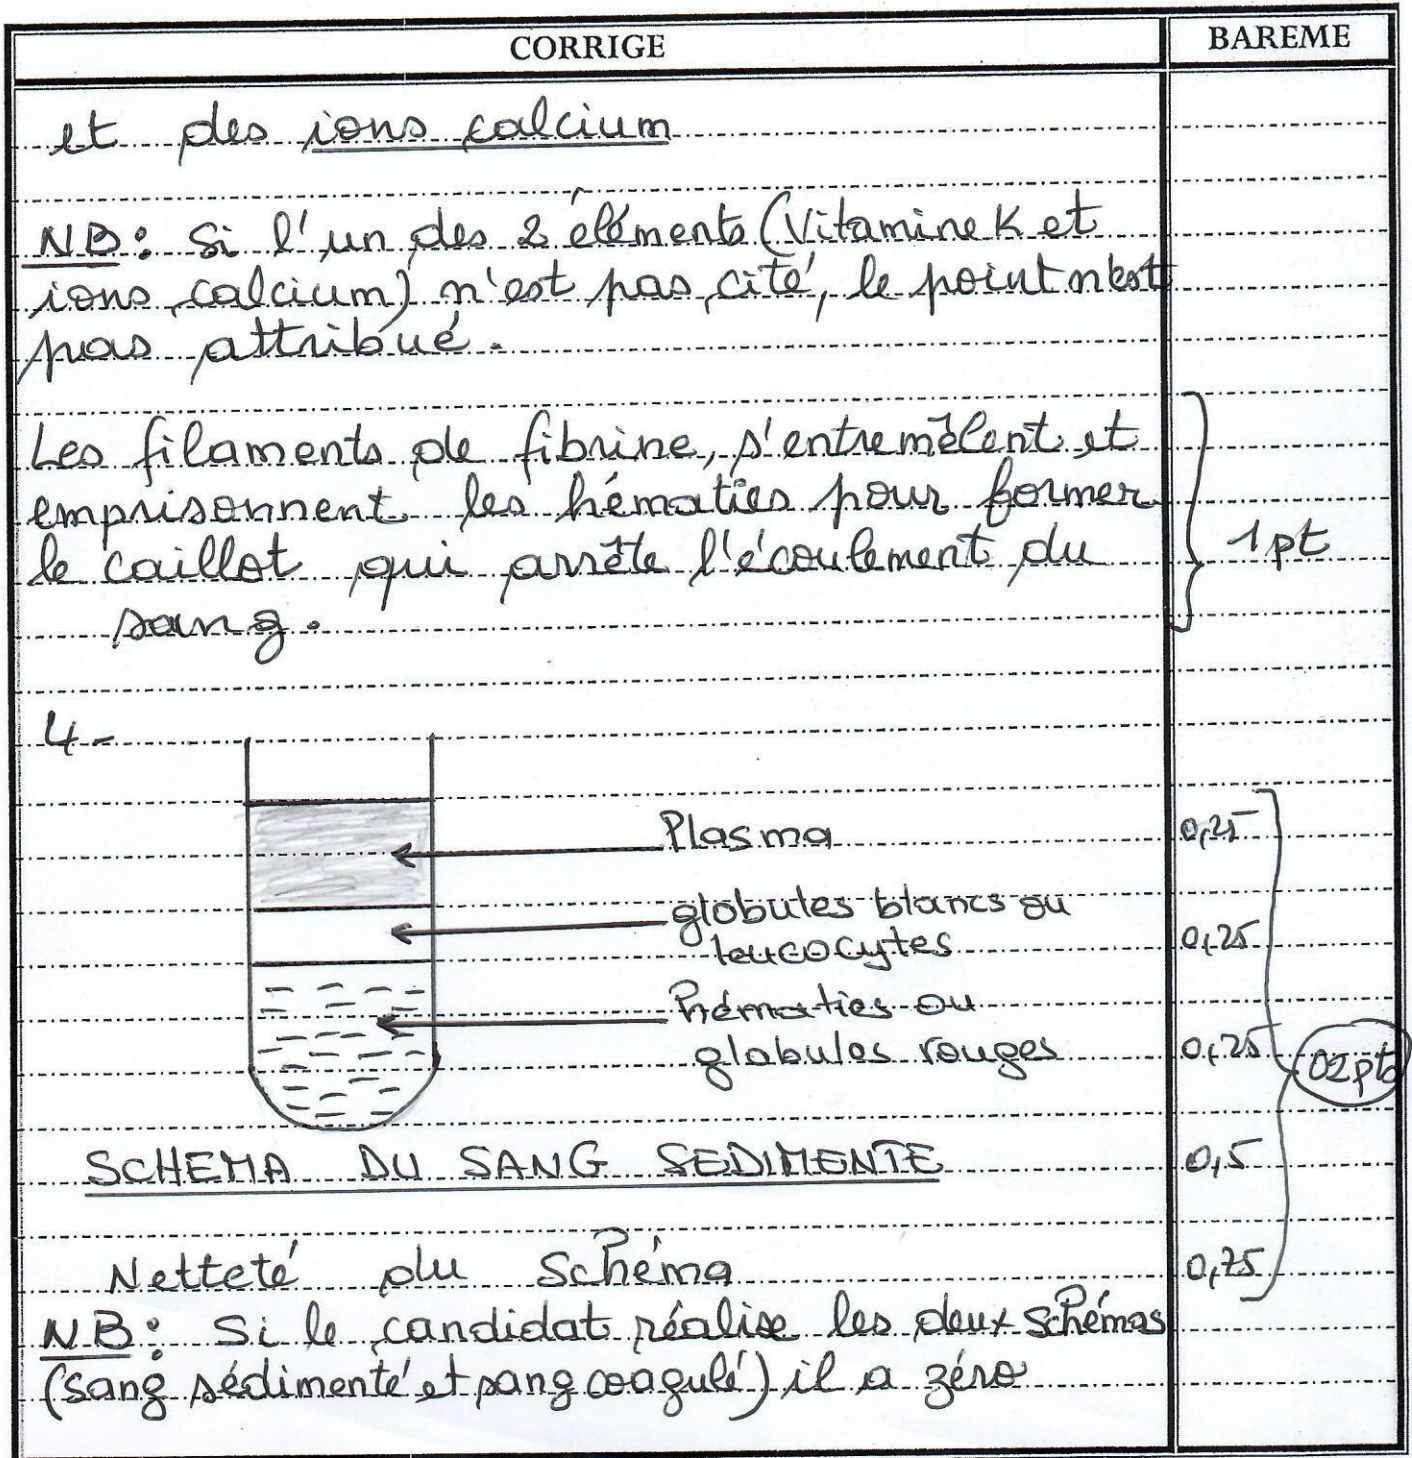 CORRIGE BAREME
et des ions calcium
NB: Si l'un des 2 éléments (Vitamine K et
ions calcium) n'est pas cité, le point n'est
pas attribué.
Les filaments de fibrine, s'entremêlent et
emprisonnent les hématies pour former
le caillot qui arrête l'écoulement du
sang.
1 pt
4-
Plasma 0,25
globules blancs ou
leucocytes 0,25
hématies ou
globules rouges 0,25
02 pts
SCHEMA DU SANG SEDIMENTE 0,5
Netteté du schéma 0,75
NB: Si le candidat réalise les deux schémas
(sang sédimenté et sang coagulé) il a zéro